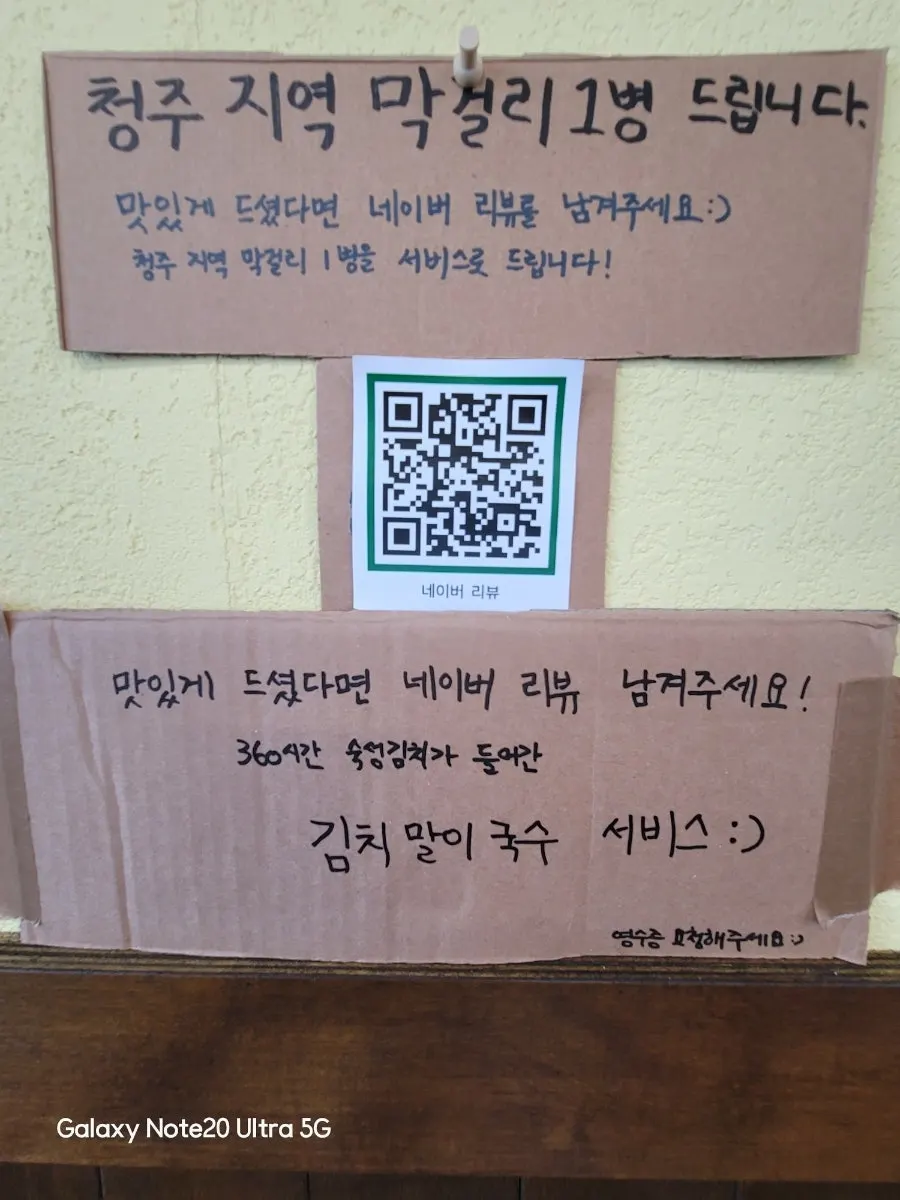 청주 지역 막걸리 1병 드립니다.
맛있게 드셨다면 네이버 리뷰를 남겨주세요:)
청주 지역 막걸리 1병을 서비스로 드립니다!
네이버 리뷰
맛있게 드셨다면 네이버 리뷰 남겨주세요!
360시간 숙성김치가 들어간
김치말이국수 서비스:)
영수증 요청해주세요:)
Galaxy Note20 Ultra 5G